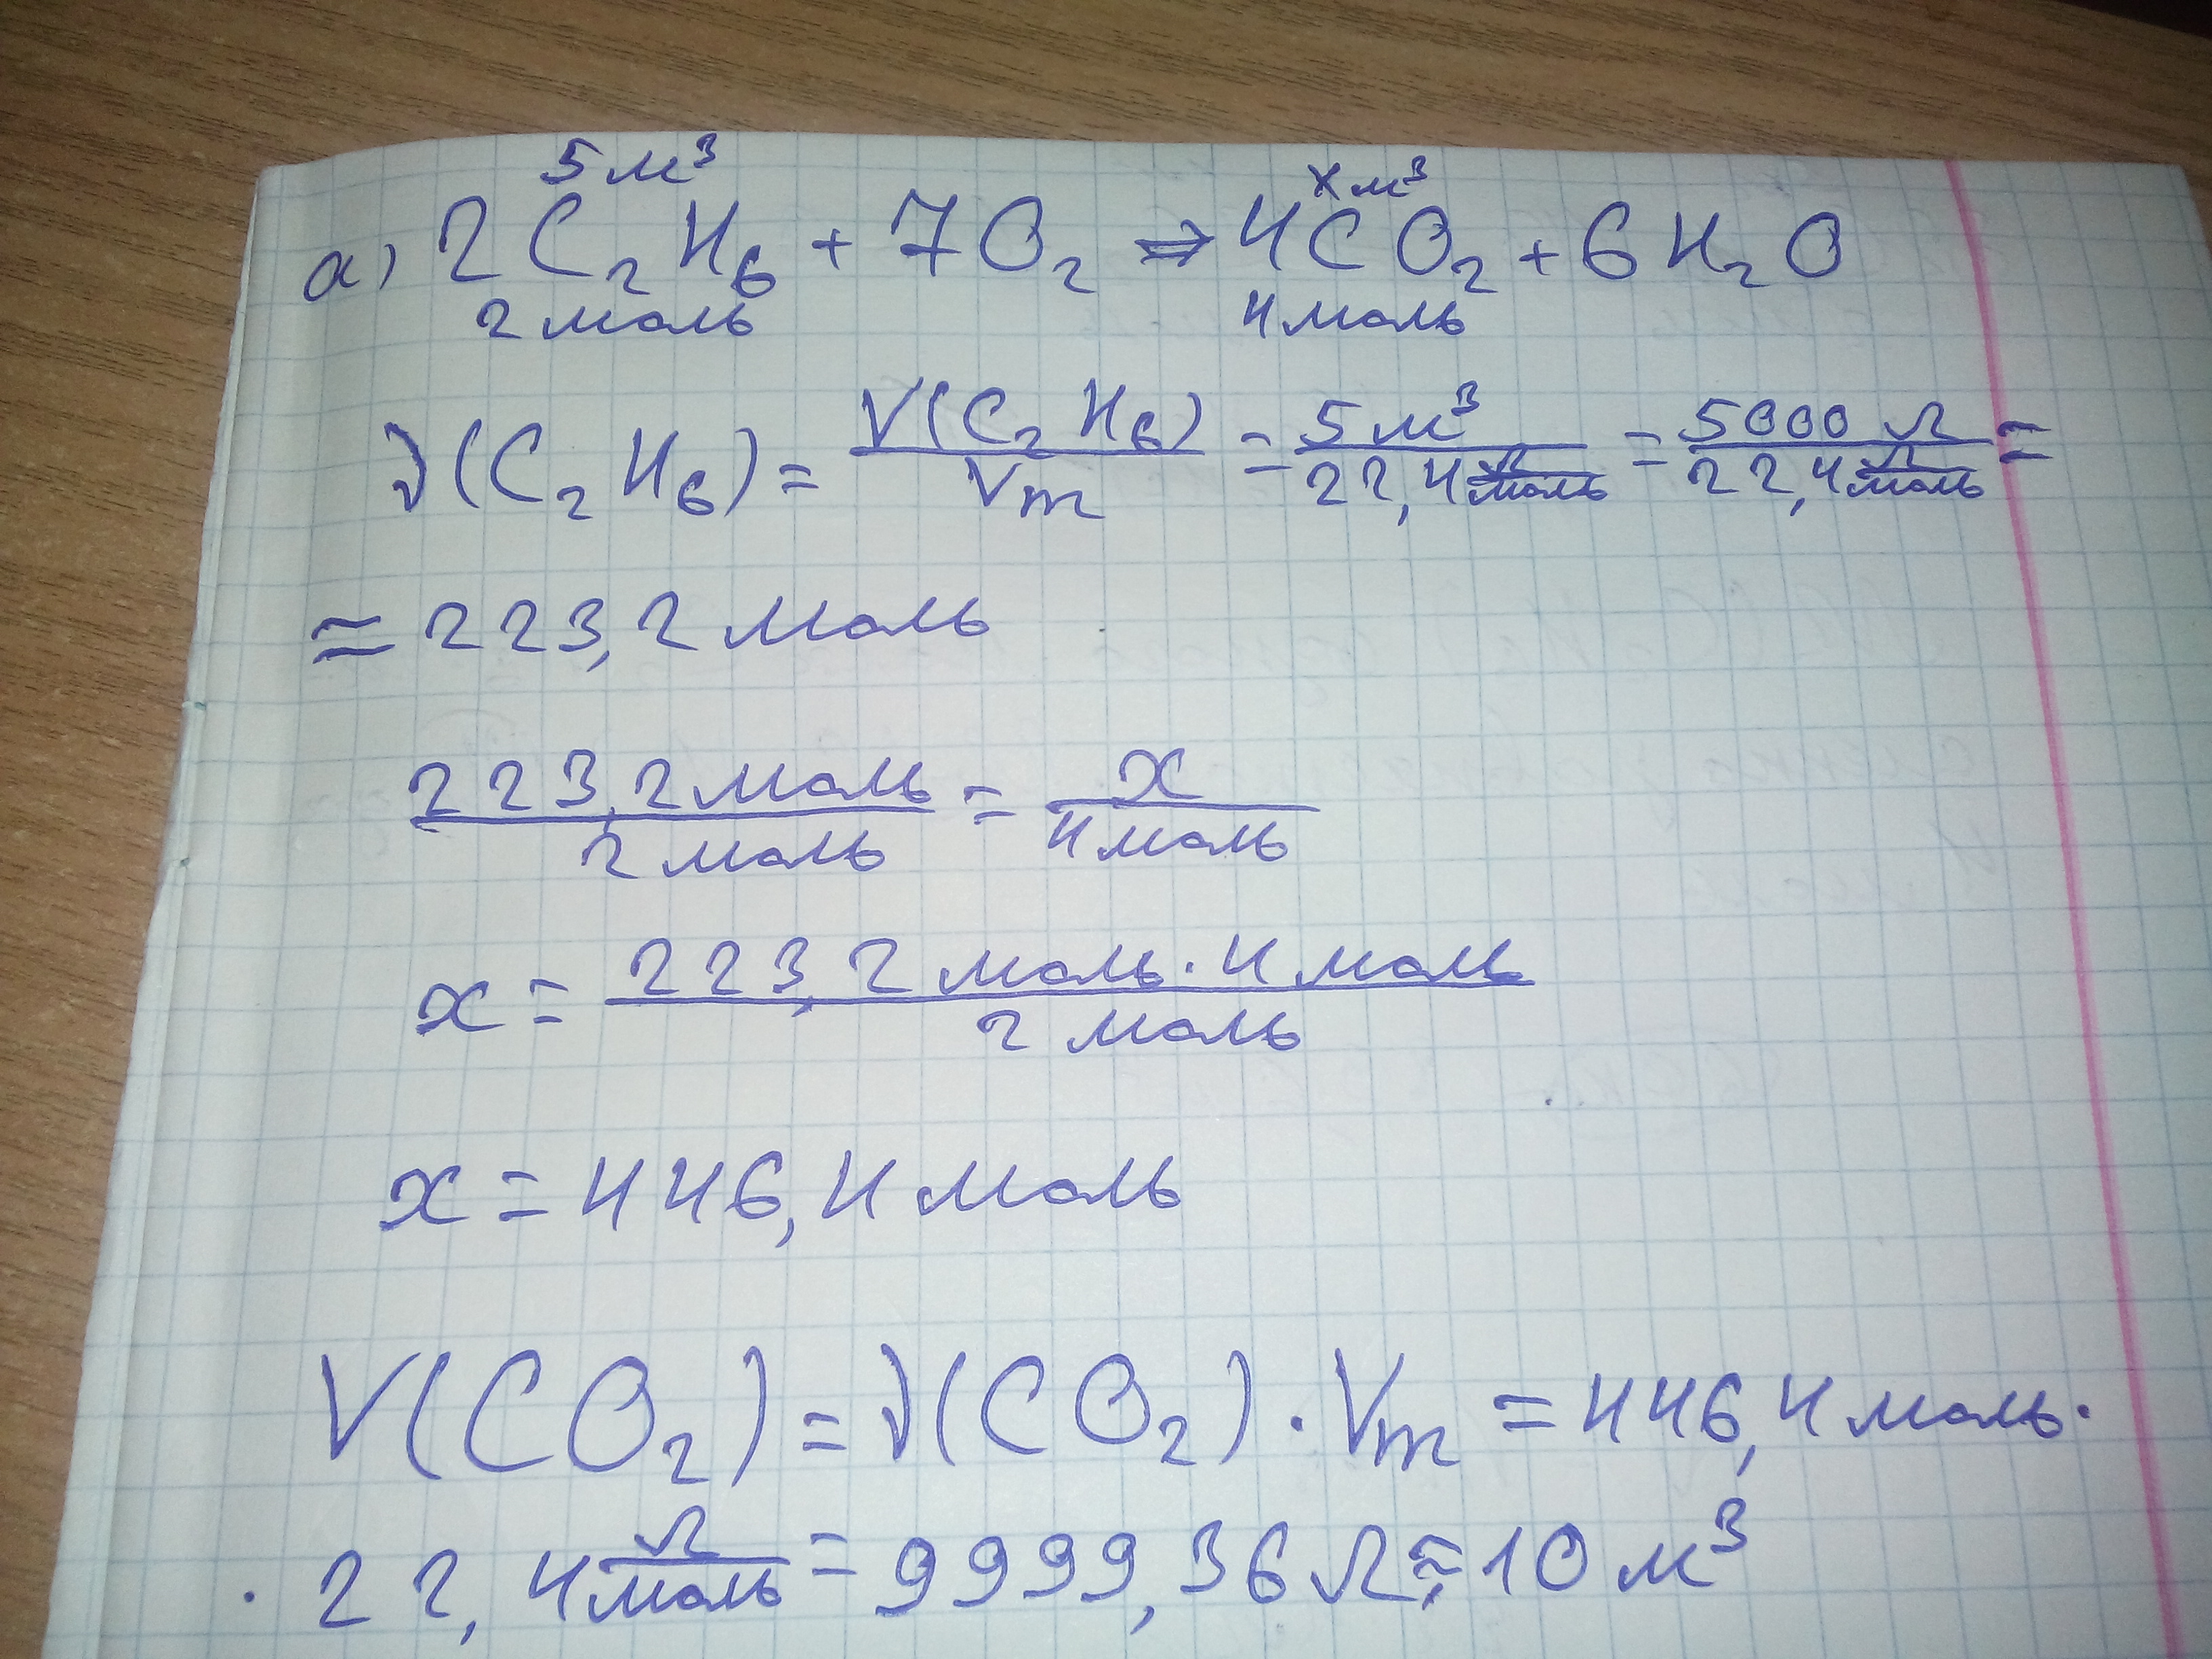 5 м³ x м³
а) 2C₂H₆ + 7O₂ ⇒ 4CO₂ + 6H₂O
2 моль 4 моль
ν(C₂H₆) = V(C₂H₆)/Vm = 5 м³/22,4 л/моль = 5000 л/22,4 л/моль =
≈ 223,2 моль
223,2 моль/2 моль = x/4 моль
x = 223,2 моль · 4 моль/2 моль
x = 446,4 моль
V(CO₂) = ν(CO₂) · Vm = 446,4 моль ·
· 22,4 л/моль = 9999,36 л ≈ 10 м³